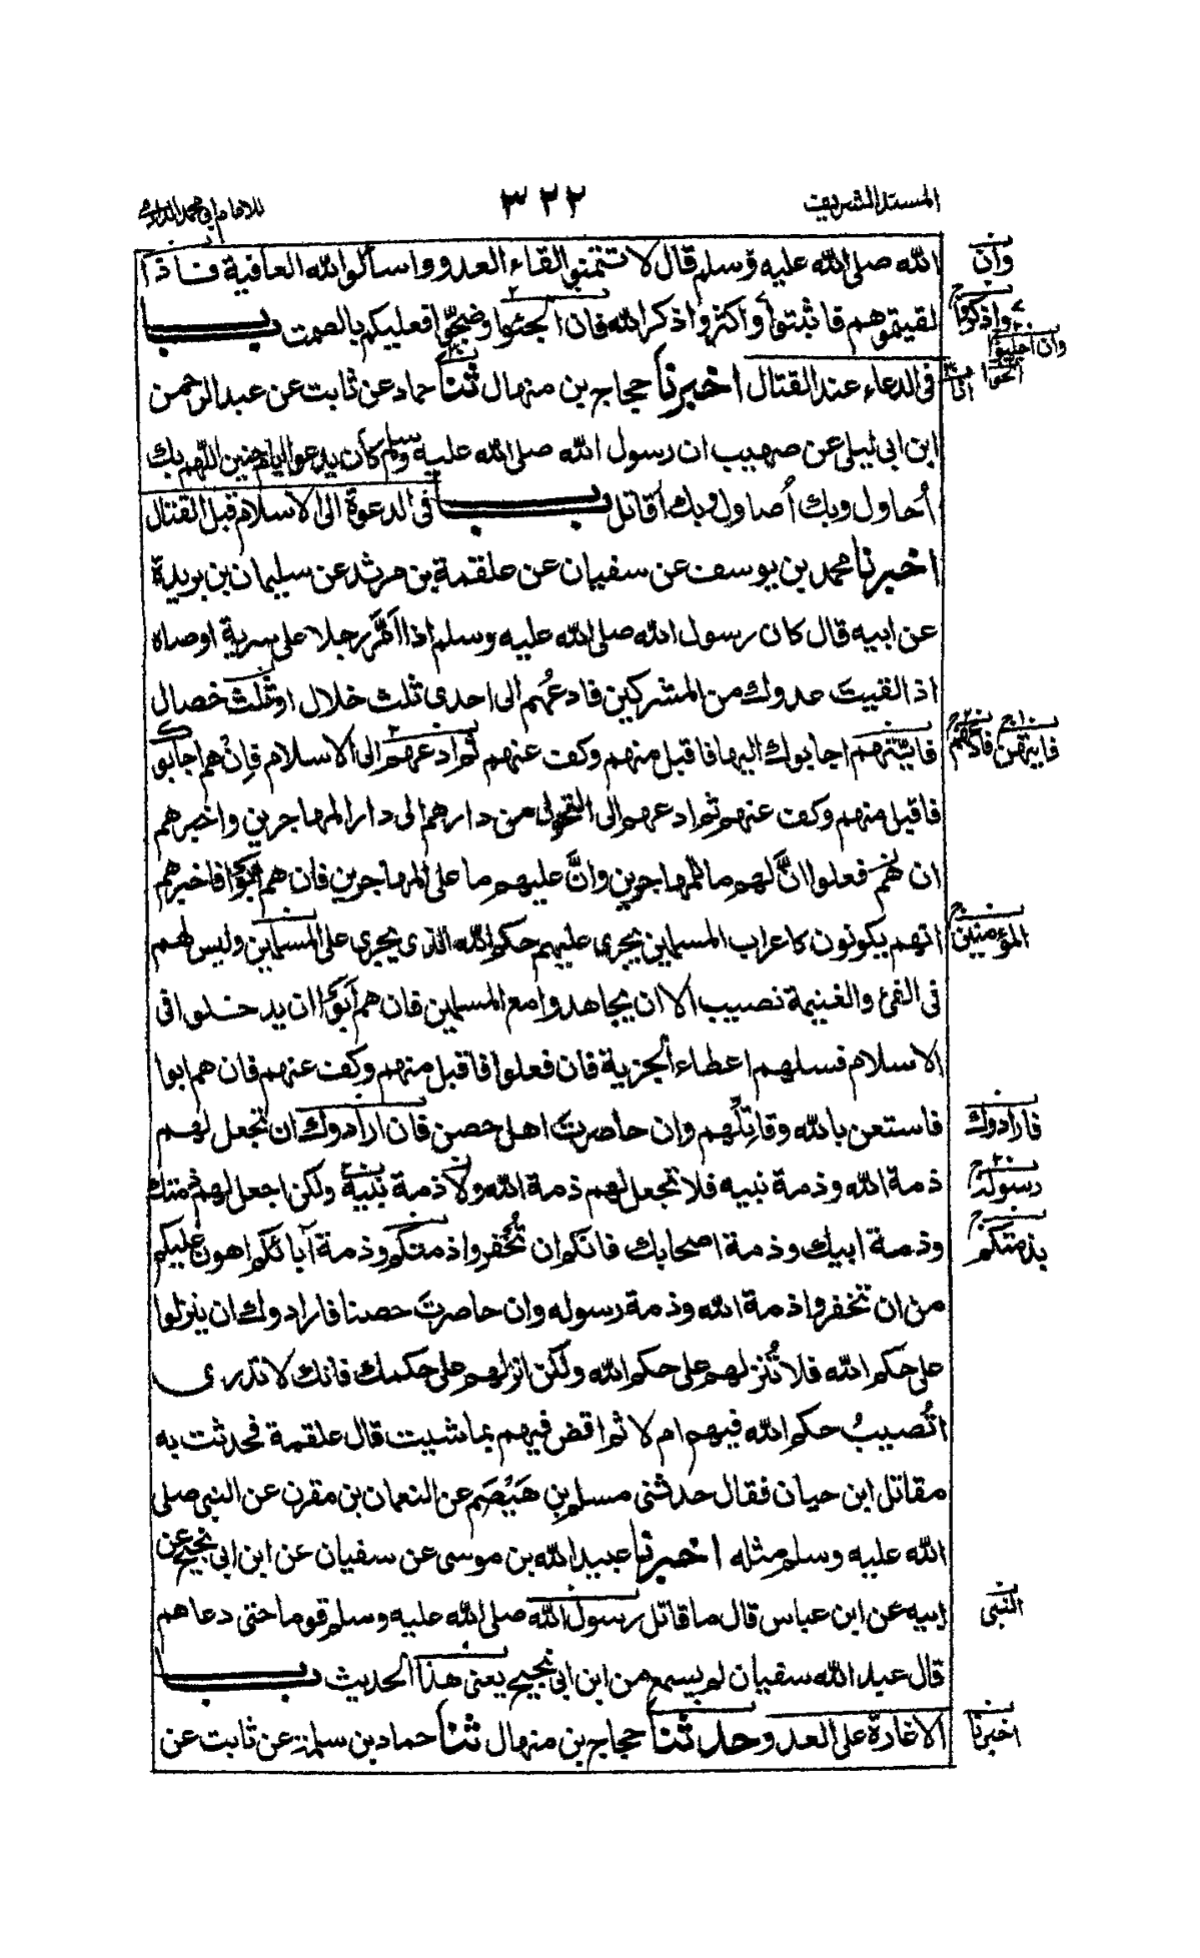 المسند الشريف
٣٢٢
للامام ابى محمد الدارمى
الله صلى الله عليه وسلم قال لا تتمنوا لقاء العدو واسألوا الله العافية فاذا
لقيتموهم فاثبتوا واكثروا ذكر الله فان اجلبوا وضجوا فعليكم بالصمت باب
فى الدعاء عند القتال اخبرنا حجاج بن منهال ثنا حماد عن ثابت عن عبد الرحمن
ابن ابى ليلى عن صهيب ان رسول الله صلى الله عليه وسلم كان يدعو ايام حنين اللهم بك
أحاول وبك أصاول وبك أقاتل باب فى الدعوة الى الاسلام قبل القتال
اخبرنا محمد بن يوسف عن سفيان عن علقمة بن مرثد عن سليمان بن بريدة
عن ابيه قال كان رسول الله صلى الله عليه وسلم اذا امَّر رجلا على سرية اوصاه
اذا لقيت عدوك من المشركين فادعُهم الى احدى ثلث خلال او ثلث خصال
فايتهم اجابوك اليها فاقبل منهم وكف عنهم ثم ادعهم الى الاسلام فإن هم اجابوك
فاقبل منهم وكف عنهم ثم ادعهم الى التحول من دارهم الى دار المهاجرين واخبرهم
ان هم فعلوا انَّ لهم ما للمهاجرين وانَّ عليهم ما على المهاجرين فان هم أبوا فاخبرهم
انهم يكونون كاعراب المسلمين يجرى عليهم حكم الله الذى يجرى على المسلمين وليس لهم
فى الفئ والغنيمة نصيب الا ان يجاهدوا مع المسلمين فان هم أبوا ان يدخلوا فى
الاسلام فسلهم اعطاء الجزية فان فعلوا فاقبل منهم وكف عنهم فان هم ابوا
فاستعن بالله وقاتِلهم وان حاصرت اهل حصن فان ارادوك ان تجعل لهم
ذمة الله وذمة نبيه فلا تجعل لهم ذمة الله ولا ذمة نبيه ولكن اجعل لهم ذمتك
وذمة ابيك وذمة اصحابك فانكم ان تُخفروا ذمتكم وذمة آبائكم اهون عليكم
من ان تخفروا ذمة الله وذمة رسوله وان حاصرت حصنا فارادوك ان ينزلوا
على حكم الله فلا تُنزلهم على حكم الله ولكن انزلهم على حكمك فانك لا تدرى
اتُصيبُ حكم الله فيهم ام لا ثم اقض فيهم بما شيت قال علقمة فحدثت به
مقاتل ابن حيان فقال حدثنى مسلم بن هَيْصَم عن النعمان بن مقرن عن النبى صلى
الله عليه وسلم مثله اخبرنا عبيد الله بن موسى عن سفيان عن ابن ابى نجيح عن
ابيه عن ابن عباس قال ما قاتل رسول الله صلى الله عليه وسلم قوما حتى دعاهم
قال عبد الله سفيان لم يسمع من ابن ابى نجيح يعنى هذا الحديث باب
الاغارة على العدو حدثنا حجاج بن منهال ثنا حماد بن سلمة عن ثابت عن
وان
واذكروا
وان اجلبوا
المؤمنين
فارادوك
رسوله
بذمتكم
النبى
اخبرنا